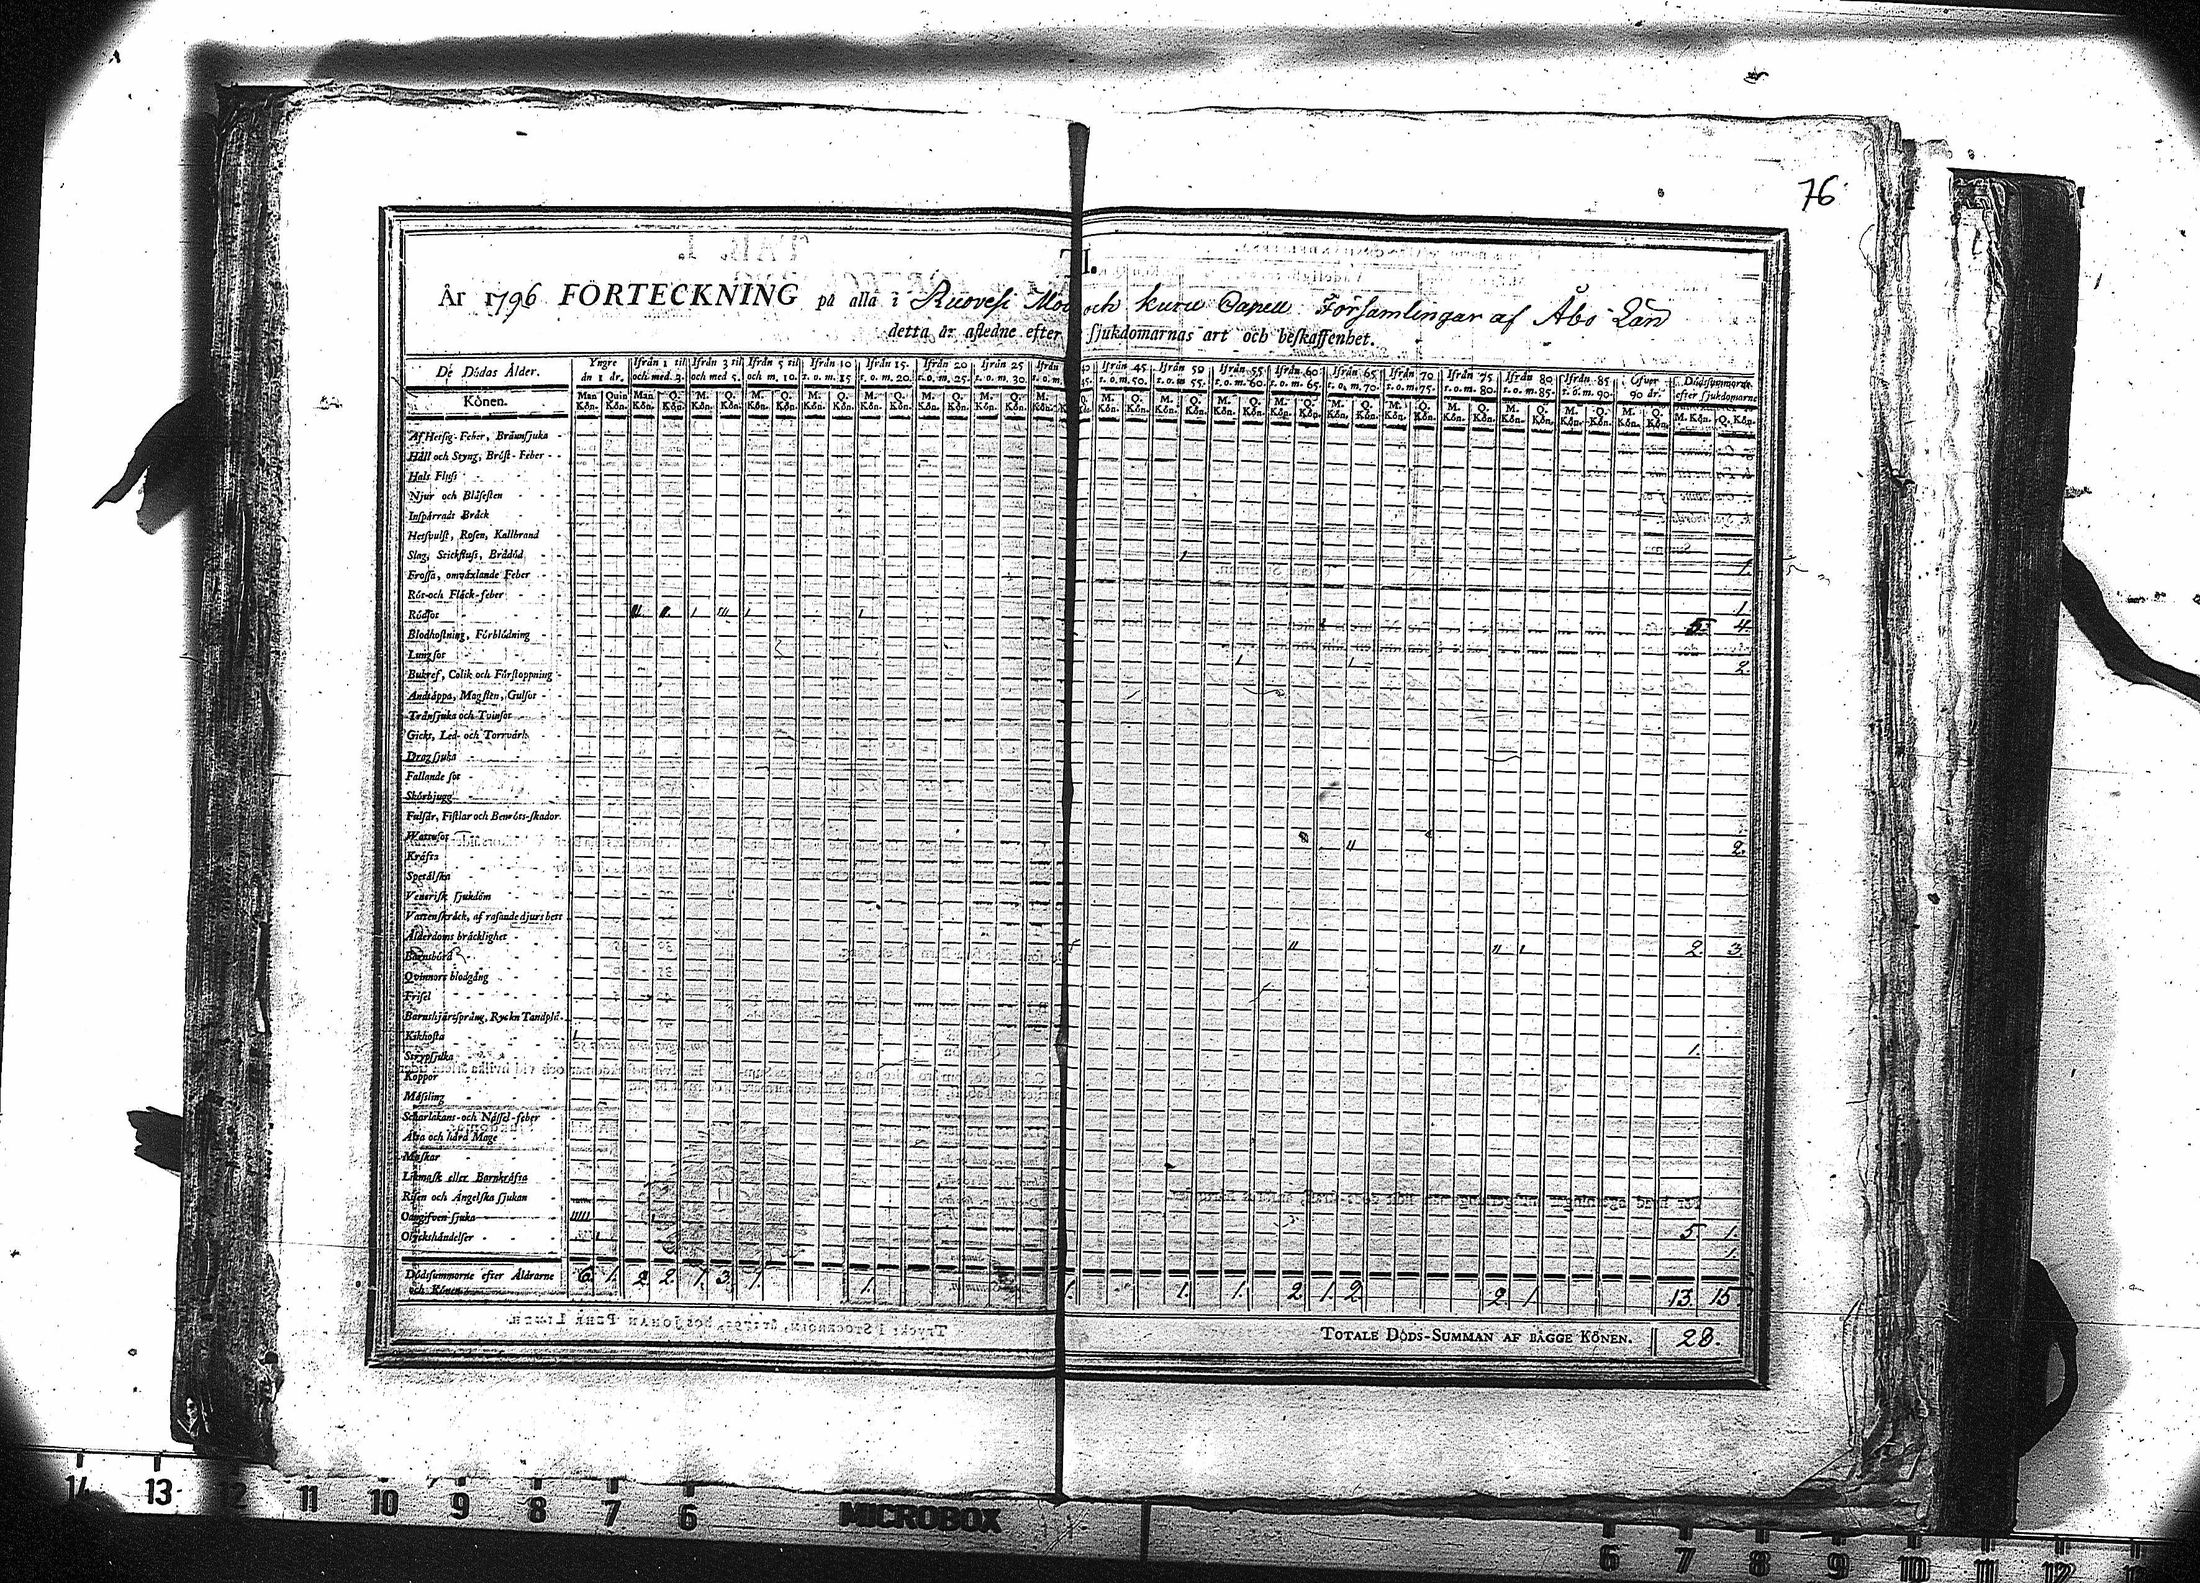 76
År 1796 FÖRTECKNING på alla i Ruovesi Mod och Kuru Capell Församlingar af Åbo Län
detta år aflednе efter sjukdomarnas art och beskaffenhet.
De Dödas Ålder. Yngre än 1 år. Ifrån 1 til och med 3. Ifrån 3 til och med 5. Ifrån 5 til och m. 10. Ifrån 10 t.o.m. 15 Ifrån 15. t.o.m. 20. Ifrån 20 t.o.m. 25. Ifrån 25 t.o.m. 30. Ifrån Ifrån 45 t.o.m. 50. Ifrån 50 t.o.m. 55. Ifrån 55 t.o.m. 60. Ifrån 60 t.o.m. 65. Ifrån 65 t.o.m. 70. Ifrån 70 t.o.m. 75. Ifrån 75 t.o.m. 80. Ifrån 80 t.o.m. 85. Ifrån 85 t.o.m. 90. Öfver 90 år. Dödssummorne efter sjukdomarne
Könen. Man Kön. Quin Kön. Man Kön. Q. Kön. M. Kön. Q. Kön. M. Kön. Q. Kön. M. Kön. Q. Kön. M. Kön. Q. Kön. M. Kön. Q. Kön. M. Kön. Q. Kön.
Af Hetsig-Feber, Brännsjuka
Håll och Styng, Bröst-Feber
Hals Fluss
Njur och Blåsesten
Inspärradt Bråck
Hetsvulst, Rosen, Kallbrand
Slag, Stickfluss, Brådöd 1 1.
Frossa, omväxlande Feber
Röt-och Fläck-feber 1
Rödsot 5. 4.
Blodhostning, Förblödning
Lungsot 1 1 2.
Bukref, Colik och Förstoppning
Andtäppa, Magsten, Gulsot
Tränsjuka och Tvinsot
Gickt, Led- och Torrvärk
Dragsjuka
Fallande sot
Skörbjugg
Fulsår, Fistlar och Benröts-skador.
Wattusot 2.
Kräfta
Spetälska
Venerisk sjukdom
Vattenskräck, af rasande djurs bett
Ålderdoms bräcklighet 2. 3.
Barnsbörd
Qvinnors blodgång
Frisel
Barnshjärtsprång, Ryckn Tandplå.
Kikhosta 1 1.
Strypsjuka
Koppor
Mässling
Scharlakans- och Nässel-feber
Altа och hård Mage
Maskar
Likmask eller Barnkräfta
Risen och Ängelska sjukan
Oangifven sjuka 5. 1.
Olyckshändelser 1.
Dödssummorne efter Åldrarne och Könen 6. 1. 2. 2. 1. 3. 1. 1. 1. 1. 1. 2 1. 2 2 1 13. 15.
TOTALE DÖDS-SUMMAN AF BÄGGE KÖNEN. 28.
14 13 12 11 10 9 8 7 6 MICROBOX 6 7 8 9 10 11 12